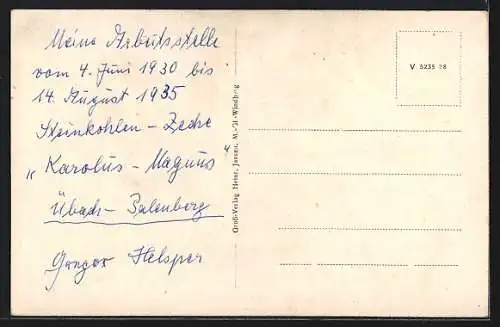 Meine Arbeitsstelle
vom 4. Juni 1930 bis
14. August 1935
Steinkohlen – Zeche
„ Karolus – Magnus "
Übach – Palenberg
Gregor Helsper
Groß-Verlag Heinr. Jansen, M.-Gl.-Windberg
V 5235 28